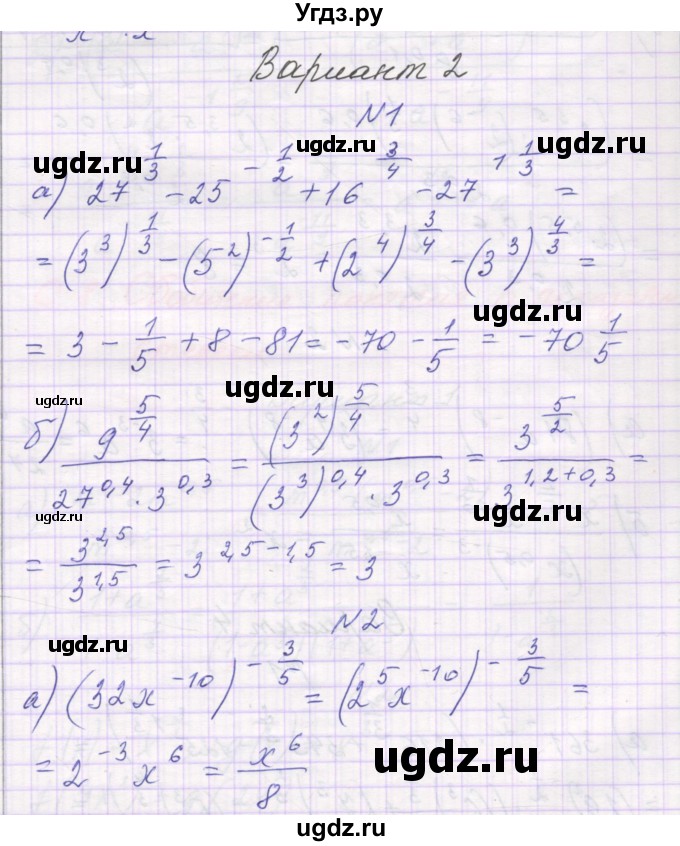 Угдз.ру
Вариант 2
N1
а) 27^(1/3) - 25^(-1/2) + 16^(3/4) - 27^(1 1/3) =
= (3^3)^(1/3) - (5^2)^(-1/2) + (2^4)^(3/4) - (3^3)^(4/3) =
= 3 - 1/5 + 8 - 81 = -70 - 1/5 = -70 1/5
б) 9^(5/4) / (27^(0,4) · 3^(0,3)) = (3^2)^(5/4) / ((3^3)^(0,4) · 3^(0,3)) = 3^(5/2) / 3^(1,2+0,3) =
= 3^(2,5) / 3^(1,5) = 3^(2,5-1,5) = 3
N2
а) (32x^(-10))^(-3/5) = (2^5 x^(-10))^(-3/5) =
= 2^(-3) x^6 = x^6 / 8
ugdz.ru
ugdz.ru
ugdz.ru
ugdz.ru
ugdz.ru
ugdz.ru
ugdz.ru
ugdz.ru
ugdz.ru
ugdz.ru
ugdz.ru
ugdz.ru
ugdz.ru